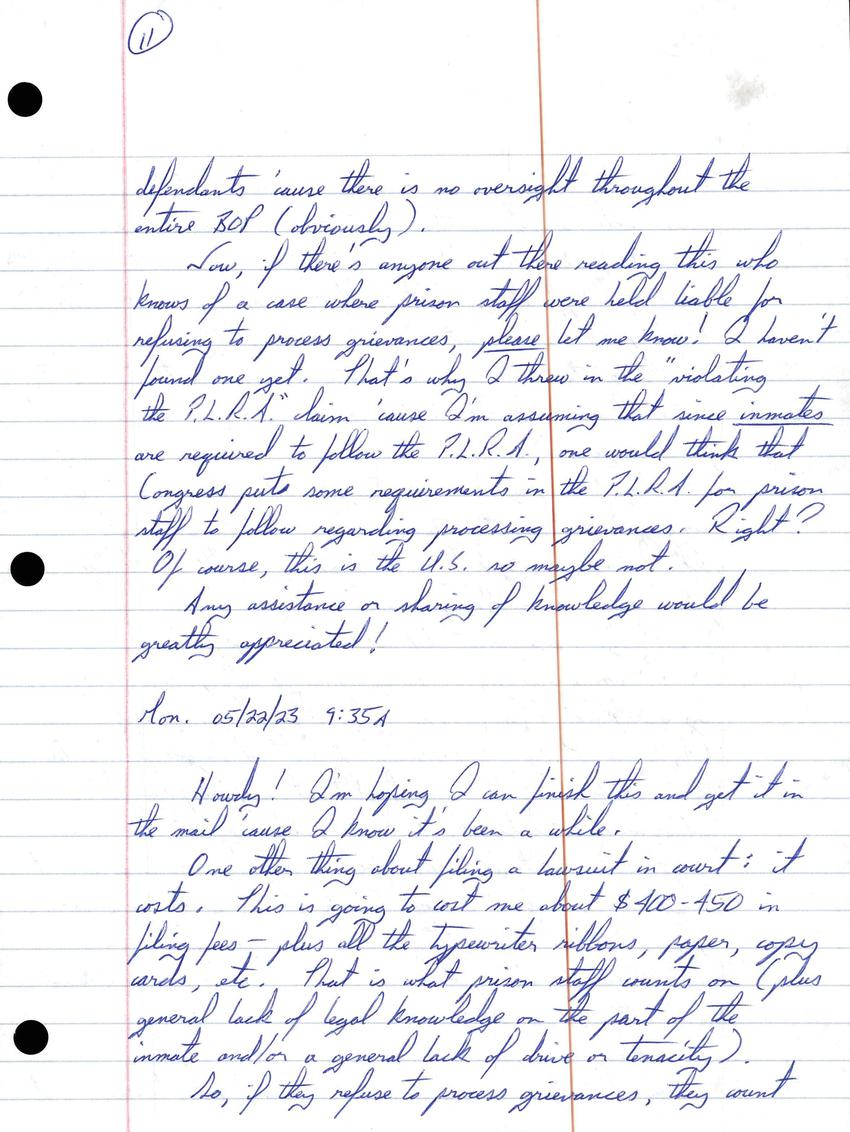 11
defendants 'cause there is no oversight throughout the
entire BOP (obviously).
Now, if there's anyone out there reading this who
knows of a case where prison staff were held liable for
refusing to process grievances, please let me know! I haven't
found one yet. That's why I threw in the "violating
the P.L.R.A." claim 'cause I'm assuming that since inmates
are required to follow the P.L.R.A., one would think that
Congress puts some requirements in the P.L.R.A. for prison
staff to follow regarding processing grievances. Right?
Of course, this is the U.S. so maybe not.
Any assistance or sharing of knowledge would be
greatly appreciated!
Mon. 05/22/23 9:35A
Howdy! I'm hoping I can finish this and get it in
the mail 'cause I know it's been a while.
One other thing about filing a lawsuit in court: it
costs. This is going to cost me about $400-450 in
filing fees - plus all the typewriter ribbons, paper, copy
cards, etc. That is what prison staff counts on (plus
general lack of legal knowledge on the part of the
inmate and/or a general lack of drive or tenacity).
So, if they refuse to process grievances, they count